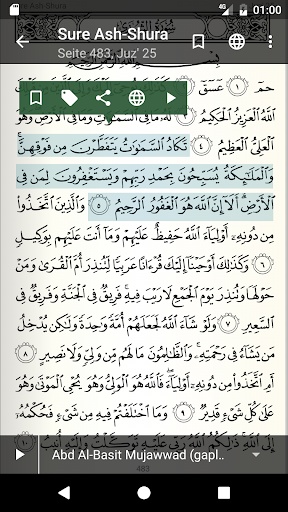 01:00
Sure Ash-Shura
Seite 483, Juz' 25
حمٓ ١ عٓسٓقٓ
ٱللَّهُ ٱلْعَزِيزُ ٱلْحَكِيمُ
ٱلْعَلِىُّ ٱلْعَظِيمُ ٤ تَكَادُ ٱلسَّمَٰوَٰتُ يَتَفَطَّرْنَ مِن فَوْقِهِنَّ ۚ
وَٱلْمَلَٰٓئِكَةُ يُسَبِّحُونَ بِحَمْدِ رَبِّهِمْ وَيَسْتَغْفِرُونَ لِمَن فِى
ٱلْأَرْضِ ۗ أَلَآ إِنَّ ٱللَّهَ هُوَ ٱلْغَفُورُ ٱلرَّحِيمُ ٥ وَٱلَّذِينَ ٱتَّخَذُوا۟
مِن دُونِهِۦٓ أَوْلِيَآءَ ٱللَّهُ حَفِيظٌ عَلَيْهِمْ وَمَآ أَنتَ عَلَيْهِم بِوَكِيلٍ
٦ وَكَذَٰلِكَ أَوْحَيْنَآ إِلَيْكَ قُرْءَانًا عَرَبِيًّا لِّتُنذِرَ أُمَّ ٱلْقُرَىٰ وَمَنْ
حَوْلَهَا وَتُنذِرَ يَوْمَ ٱلْجَمْعِ لَا رَيْبَ فِيهِ ۚ فَرِيقٌ فِى ٱلْجَنَّةِ وَفَرِيقٌ فِى
ٱلسَّعِيرِ ٧ وَلَوْ شَآءَ ٱللَّهُ لَجَعَلَهُمْ أُمَّةً وَٰحِدَةً وَلَٰكِن يُدْخِلُ
مَن يَشَآءُ فِى رَحْمَتِهِۦ ۚ وَٱلظَّٰلِمُونَ مَا لَهُم مِّن وَلِىٍّ وَلَا نَصِيرٍ
٨ أَمِ ٱتَّخَذُوا۟ مِن دُونِهِۦٓ أَوْلِيَآءَ ۖ فَٱللَّهُ هُوَ ٱلْوَلِىُّ وَهُوَ يُحْىِ ٱلْمَوْتَىٰ وَهُوَ
عَلَىٰ كُلِّ شَىْءٍ قَدِيرٌ ٩ وَمَا ٱخْتَلَفْتُمْ فِيهِ مِن شَىْءٍ فَحُكْمُهُۥٓ
إِلَى ٱللَّهِ ۚ ذَٰلِكُمُ ٱللَّهُ رَبِّى عَلَيْهِ تَوَكَّلْتُ وَإِلَيْهِ أُنِيبُ
Abd Al-Basit Mujawwad (gapl..
483